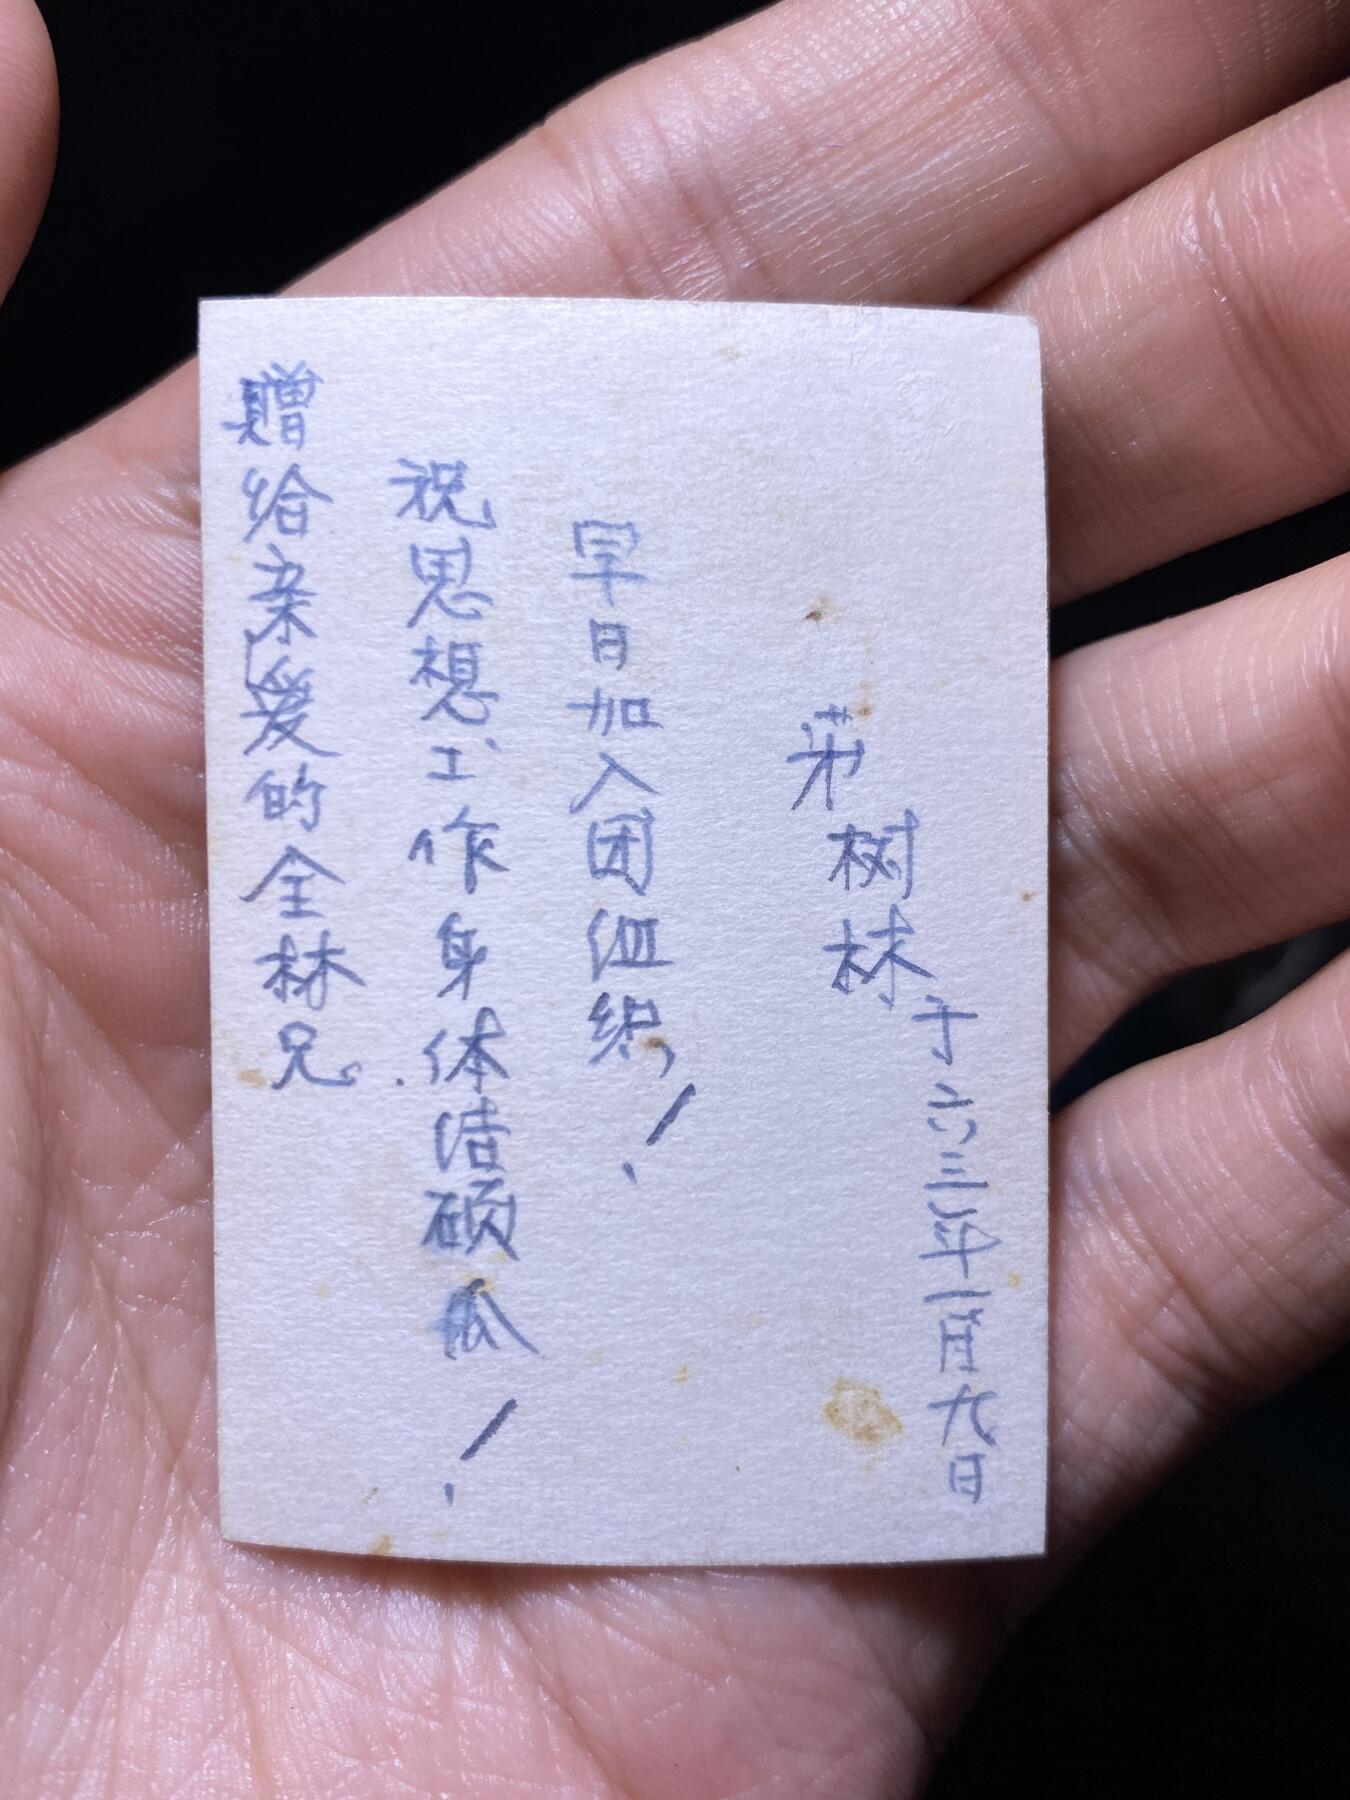 赠给亲爱的全林兄
祝思想工作身体结硕瓜!
早日加入团组织,!
弟树林
于六三年一月九日